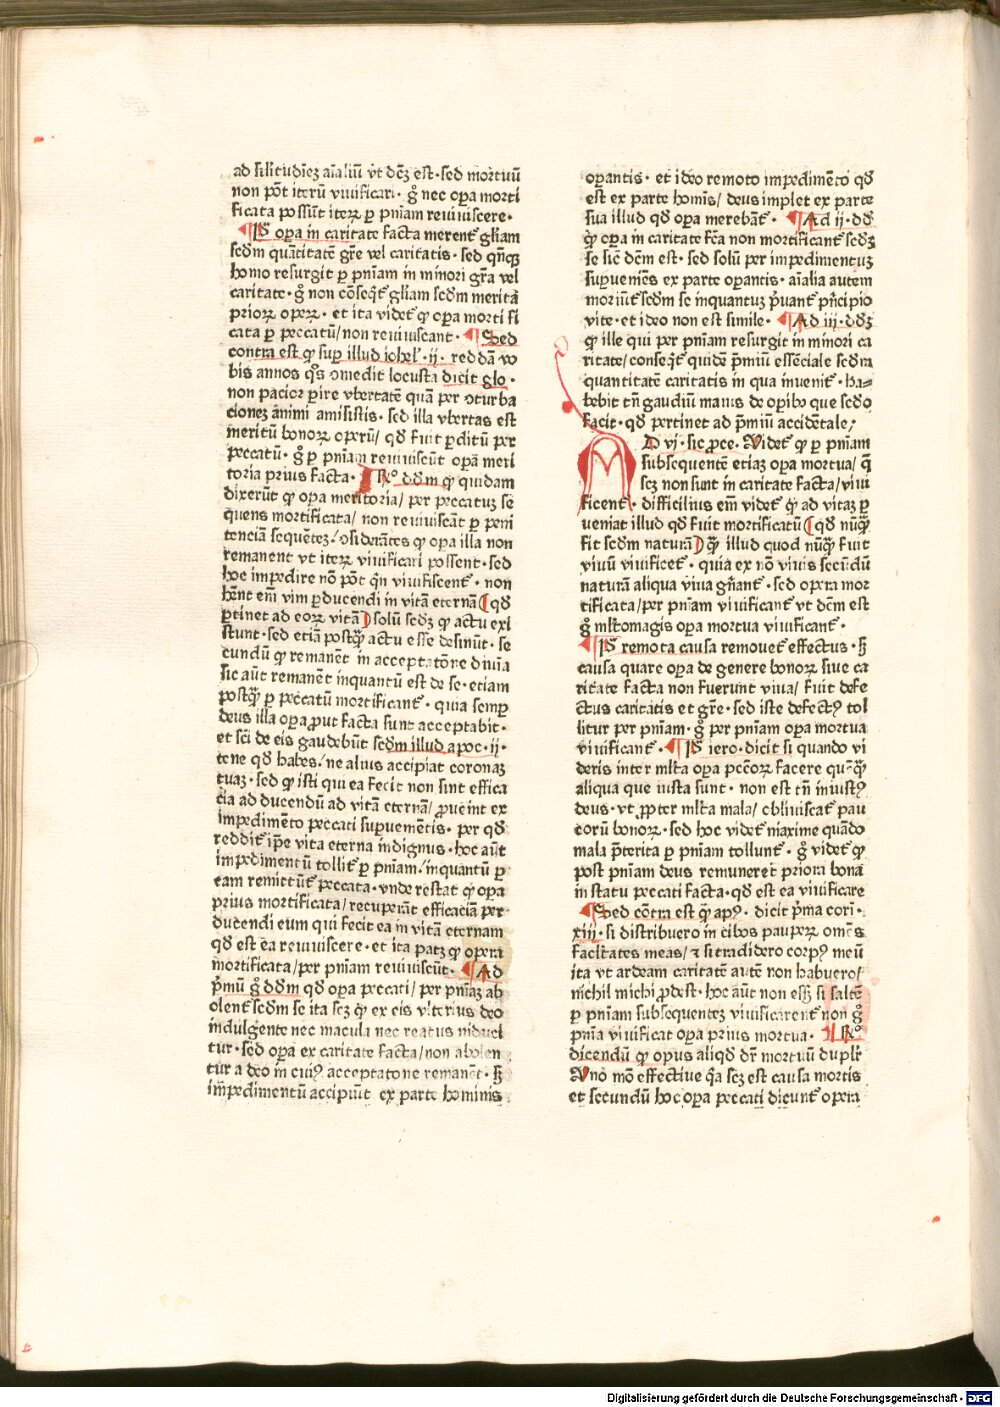 ad silitudiēz aīaliū vt dēz est· sed mortuū
non pōt iterū viuificari· gͦ nec oꝑa morti
ficata possūt iteꝝ ꝑ pn̄iam reuiuiscere·
¶ Pͤ oꝑa in caritate facta merent̄ gl̄iam
scd̄m quātitatē gr̄e vel caritatis· sed qn̄qꝫ
homo resurgit ꝑ pn̄iam in minori gr̄a vel
caritate· gͦ non cōseqt̄ gl̄iam scd̄m meritā
prioꝝ opeꝝ· et ita videt̄ ꝙ oꝑa morti fi
cata ꝑ peccatū/ non reuiuiscant· ¶ Sed
contra est ꝙ suꝑ illud iohel·ii· reddā vo
bis annos qͦs ꝯmedit locusta dicit glo·
non pacior ꝑire vbertatē quā per ꝯturba
cionez animi amisistis· sed illa vbertas est
meritū bonoꝝ operū/ qd̄ fuit ꝑditū per
peccatū· gͦ ꝑ pn̄iam reuiuiscūt oꝑa meri
toria prius facta· ¶ Rͦ· dd̄m ꝙ quidam
dixerūt ꝙ oꝑa meritoria/ per peccatuꝫ se
quens mortificata/ non reuiuiscāt ꝑ peni
tenciā sequētez/ ꝯsiderātes ꝙ oꝑa illa non
remanent vt iteꝝ viuificari possent· sed
hoc impedire nō pōt qn̄ viuifiscent̄· non
hn̄t em̄ vim ꝑducendi in vitā eternā (qd̄
ꝑtinet ad eoꝝ vitā) solū scdꝫ ꝙ actu exi
stunt· sed etiā postqͣꝫ actu esse desinūt· se
cundū ꝙ remanēt in acceptatōne diuīa
sic aūt remanēt inquantū est de se· etiam
postqͣꝫ ꝑ peccatū mortificant̄· quia semꝑ
deus illa oꝑa ꝓut facta sunt acceptabit·
et sc̄i de eis gaudebūt scd̄m illud apoc·ii·
tene qd̄ habes/ ne alius accipiat coronaꝫ
tuaꝫ· sed ꝙ isti qui ea fecit non sint effica
cia ad ducendū ad vitā eternā/ ꝓueint ex
impedimēto peccati suꝑuemētis· per qd̄
reddit̄ ip̄e vita eterna indignus· hoc aūt
impedimentū tollit̄ ꝑ pn̄iam/ inquantū ꝑ
eam remittūt̄ peccata· vnde restat ꝙ oꝑa
prius mortificata/ recuperāt efficaciā per
ducendi eum qui fecit ea in vitā eternam
qd̄ est ea reuiuiscere· et ita patꝫ ꝙ opera
mortificata/ per pn̄iam reuiuiscūt· ¶ Ad
pͥmū gͦ dd̄m qd̄ oꝑa peccati/ per pn̄iaꝫ ab
olent̄ scd̄m se ita scꝫ ꝙ ex eis vlterius deo
indulgente nec macula nec reatus īnduci
tur· sed oꝑa ex caritate facta/ non abolen
tur a deo in cuiꝰ acceptatōne remanēt· sꝫ
im̄pedimentū accipiūt ex parte hominis
oꝑantis· et ideo remoto impedimēto qd̄
est ex parte homīs/ deus implet ex parte
sua illud qd̄ oꝑa merebāt̄· ¶ Ad ii· dd̄
ꝙ oꝑa in caritate fc̄a non mortificant̄ scdꝫ
se sic̄ dēm est· sed solū per impedimentuꝫ
suꝑuemēs ex parte oꝑantis· aīalia autem
moriūt̄ scd̄m se inquantuꝫ pͥuant̄ pͥncipio
vite· et ideo non est simile· ¶ Ad iii· ddꝫ
ꝙ ille qui per pn̄iam resurgit in minori ca
ritate/ conseqt̄ quidē pͥmiū essēciale scd̄m
quantitatē caritatis in qua inuenit̄· ha⸗
bebit tn̄ gaudiū maius de oꝑibꝰ que scd̄o
facit· qd̄ pertinet ad pͥmiū accidētale/
AD vi· sic ꝓce· Videt̄ ꝙ ꝑ pn̄iam
subsequentē etiaꝫ oꝑa mortua/ q̄
scꝫ non sunt in caritate facta/ viui
ficent̄· difficilius em̄ videt̄ ꝙ ad vitaꝫ ꝑ
ueniat illud qd̄ fuit mortificatū (qd̄ nūqͣꝫ
fit scd̄m naturā) qͣꝫ illud quod nūqͣꝫ fuit
viuū viuificet̄· quia ex nō viuis secūdū
naturā aliqua viua gn̄ant̄· sed opera mor
tificata/ per pn̄iam viuificant̄ vt dēm est
gͦ ml̄tomagis oꝑa mortua viuificant̄·
¶ Pͤ remota causa remouet̄ effectus· sꝫ
causa quare oꝑa de genere bonoꝝ siue ca
ritate facta non fuerunt viua/ fuit defe
ctus caritatis et gr̄e· sed iste defectꝰ tol
litur per pn̄iam· gͦ per pn̄iam oꝑa mortua
viuificant̄· ¶ Pͤ iero· dicit si quando vi
deris inter ml̄ta oꝑa pctōꝝ facere quēqͣꝫ
aliqua que iusta sunt· non est tn̄ iniustꝰ
deus· vt ꝓpter ml̄ta mala/ obliuiscat̄ pau
corū bonoꝝ· sed hoc videt̄ maxime quādo
mala pͥterita ꝑ pn̄iam tollunt̄· gͦ videt̄ ꝙ
post pn̄iam deus remuneret priora bona
in statu peccati facta· qd̄ est ea viuificare
¶ Sed cōtra est qͣ apꝰ· dicit pͥma cori·
xiii· si distribuero in cibos paupeꝝ omēs
facl̄tates meas/ ⁊ si tradidero corpꝰ meū
ita vt ardeam caritatē autē non habuero/
nichil michi ꝓdest· hoc aūt non essꝫ si saltē
ꝑ pn̄iam subsequentez viuificarent̄ non gͦ
pn̄ia viuificat oꝑa prius mortua· ¶ Rͦ
dicendū ꝙ opus aliqd̄ dr̄ mortuū duplr̄
Vno mō effectiue qͥa scꝫ est causa mortis
et secundū hoc oꝑa peccati dicunt̄ opera
Digitalisierung gefördert durch die Deutsche Forschungsgemeinschaft · DFG